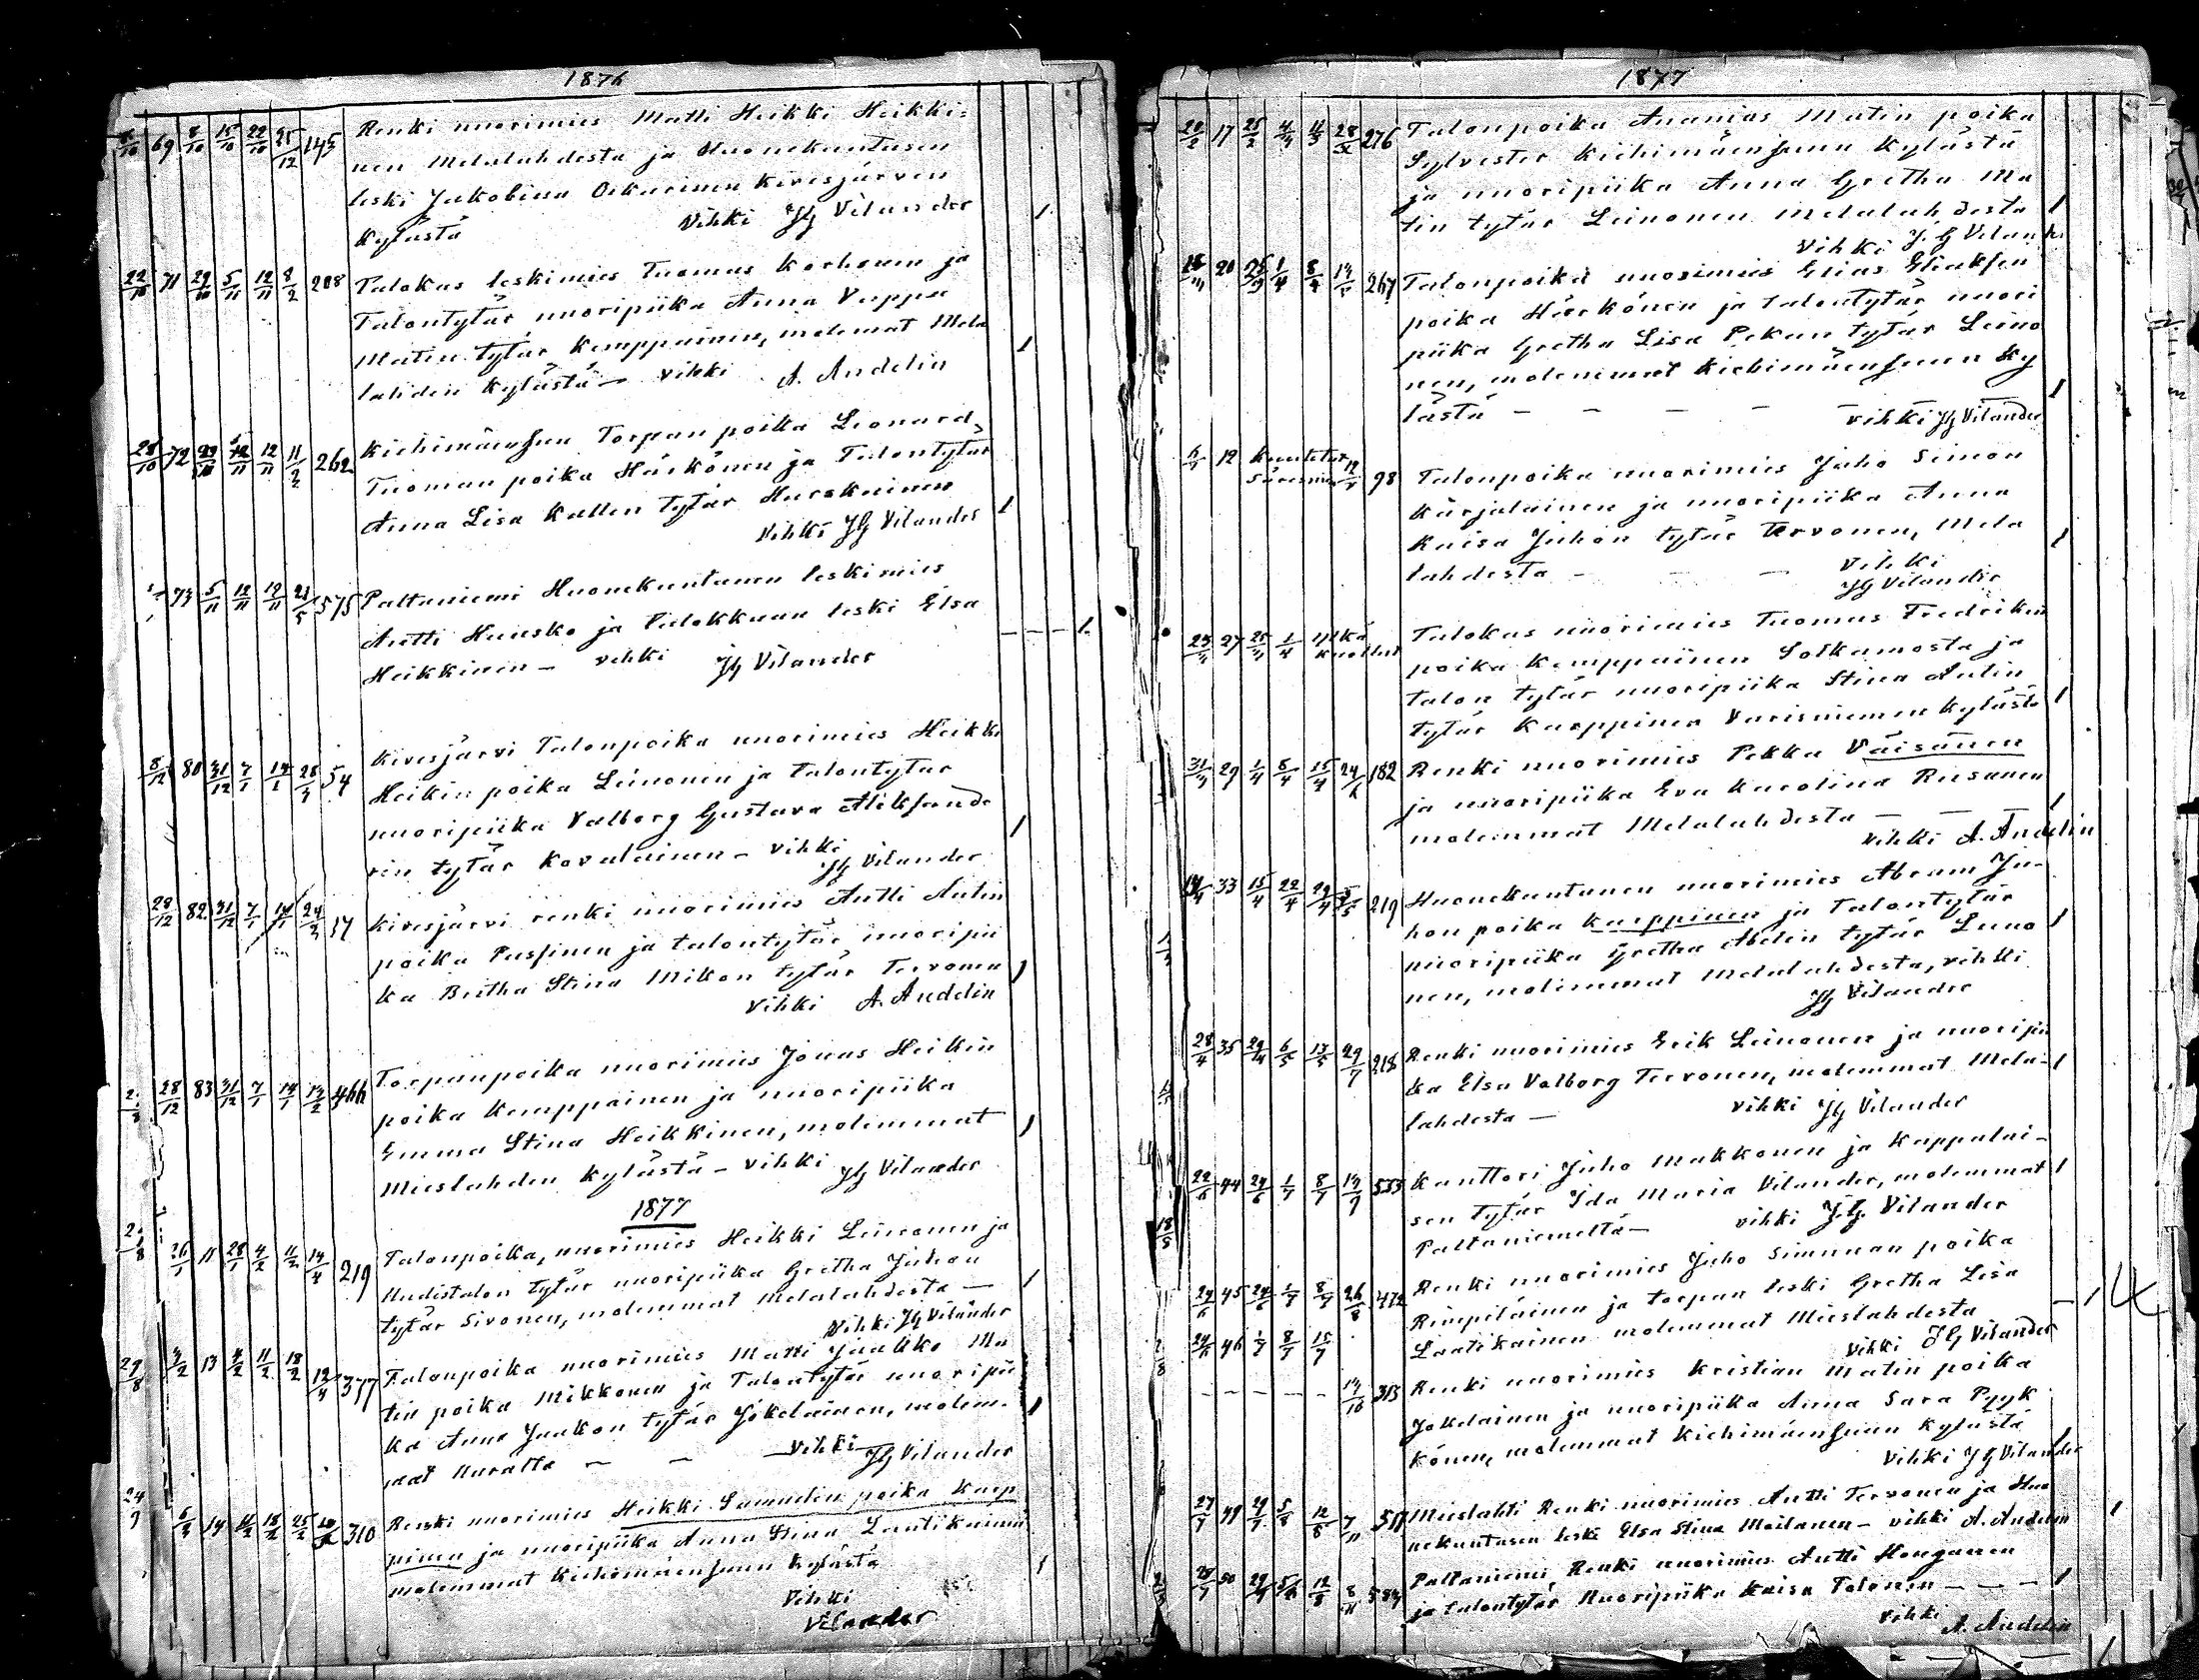 1876
8/10 69 8/10 15/10 22/10 25/12 145 Renki nuorimies Matti Heikki Heikki=
nen Melalahdesta ja Huonekuntasen
leski Jakobina Oikarinen Kivesjärven
kylästä vihki JG Vilander
22/10 71 29/10 5/11 12/11 8/2 208 Talokas leskimies Tuomas Korhonen ja
Talontytär nuoripiika Anna Vappu
Matin tytär Kemppainen, molemat Mela
lahden kylästä – vihki A. Andelin
28/10 72 29/10 5/11 12/11 11/2 262 Kiehimänsuu Torpan poika Leonard
Tuoman poika Härkönen ja Talontytär
Anna Lisa Kallen tytär Hurskainen
Vihki JG Vilander
73 5/11 12/11 19/11 575 Paltaniemi Huonekuntanen leskimies
Antti Hunsko ja Talokkaan leski Elsa
Heikkinen – vihki JG Vilander
8/12 80 31/12 7/1 14/1 54 Kivesjärvi Talonpoika nuorimies Heikki
Heikin poika Leinonen ja talontytär
nuoripiika Valborg Gustava Aleksande
rin tytär Kovalainen – vihki
JG Vilander
28/12 82 31/12 7/1 14/1 24/2 Kivesjärvi renki nuorimies Antti Antin
poika Pussinen ja talontytär nuoripii
ka Britha Stina Mikon tytär Tervonen
Vihki A. Andelin
28/12 83 31/12 7/1 14/1 466 Torpanpoika nuorimies Jonas Heikin
poika Kemppainen ja nuoripiika
Emma Stina Heikkinen, molemmat
Mieslahden kylästä – vihki JG Vilander
1877
26/1 11 28/1 4/2 11/2 14/4 219 Talonpoika, nuorimies Heikki Leinonen ja
Uudistalon tytär nuoripiika Gretha Juhon
tytär Sivonen, molemmat Melalahdesta –
Vihki JG Vilander
3/2 13 4/2 11/2 18/2 12/4 377 Talonpoika nuorimies Matti Jaakko Ma
tin poika Mikkonen ja Talontytär nuoripii
ka Anna Jaakon tytär Jokelainen, molem-
mat Uuralta – – vihki
JG Vilander
14 11/2 18/2 25/2 310 Renki nuorimies Heikki Samuelin poika Karp
pinen ja nuoripiika Anna Stina Laatikainen
molemmat Kiehimänsuun kylästä
Vihki
Vilander
1877
20/2 17 25/2 4/3 11/3 276 Talonpoika Ananias Matin poika
Sylvester Kiehimänsuun kylästä
ja nuoripiika Anna Gretha Ma
tin tytär Leinonen Melalahdesta
vihki J. G Viland
20 25/3 1/4 8/4 267 Talonpoika nuorimies Elias Eliaksen
poika Härkönen ja talontytär nuori
piika Gretha Lisa Pekan tytär Leino
nen, molemmat Kiehimänsuun ky
lästä – – – – – vihki JG Vilander
12 Kuulutus
98 Talonpoika nuorimies Juho Simon
Karjalainen ja nuoripiika Anna
Kaisa Juhon tytär Tervonen, Mela
lahdesta – – – vihki
JG Vilander
27 25/3 1/4 Talokas nuorimies Tuomas Fredrikin
poika Kemppainen Sotkamosta ja
talon tytär nuoripiika Stina Antin
tytär Karppinen Varisniemen kylästä
31/3 29 1/4 8/4 15/4 182 Renki nuorimies Pekka Väisänen
ja nuoripiika Eva Karolina Reisanen
molemmat Melalahdesta – –
vihki A. Andelin
14/4 33 15/4 22/4 29/4 219 Huonekuntanen nuorimies Abram Ju-
hon poika Karppinen ja Talontytär
nuoripiika Gretha Abelin tytär Leino
nen, molemmat Melalahdesta, vihki
JG Vilander
28/4 35 29/4 6/5 13/5 29/7 218 Renki nuorimies Erik Leinonen ja nuoripii
ka Elsa Valborg Tervonen, molemmat Mela-
lahdesta – vihki JG Vilander
22/6 44 24/6 1/7 8/7 535 Kanttori Juho Makkonen ja Kappalai-
sen tytär Ida Maria Vilander, molemmat
Paltaniemeltä – vihki J.G. Vilander
24/6 45 24/6 1/7 8/7 26/8 472 Renki nuorimies Juho Simunan poika
Rimpiläinen ja torpan leski Gretha Lisa
Laatikainen molemmat Mieslahdesta
vihki JG Vilander
46 1/7 8/7 15/7
14/10 313 Renki nuorimies Kristian Matin poika
Jokelainen ja nuoripiika Anna Sara Pyyk
könen, molemmat Kiehimänsuun kylästä
Vihki JG Vilander
27/7 49 29/7 5/8 12/8 Mieslahti Renki nuorimies Antti Tervonen ja Huo
nekuntasen leski Elsa Stina Moilanen – vihki A. Andelin
50 29/7 5/8 12/8 Paltaniemi Renki nuorimies Antti Honganen
ja talontytär Nuoripiika Kaisa Tolonen – – –
vihki
A. Andelin